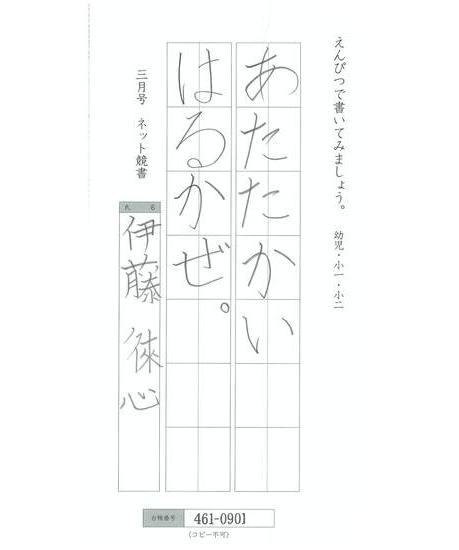 えんぴつで書いてみましょう。 幼児・小一・小二
あたたかい
はるかぜ。
三月号 ネット競書
氏名
伊藤 徠心
台帳番号 461-0901
(コピー不可)